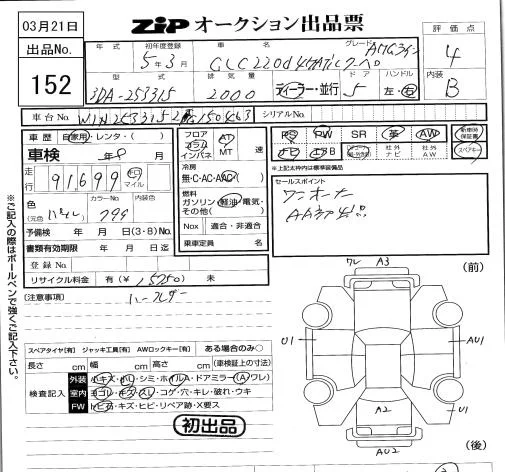 03月21日
ZIP オークション出品票
出品No.
152
年式
初年度登録
5年3月
車名
GLC220d 4MATICクーペ
グレード
AMGライン
評価点
4
型式
3DA-253315
排気量
2000
ディーラー・並行
ドア
5
ハンドル
左・右
内装
B
車台No.
シリアルNo.
車歴
自家用・レンタ・( )
車検
年 月
走行
91,699
km
マイル
色
(元色 )
カラーNo.
799
内装色
予備検 年 月 日(3・8)No.
書類有効期限 年 月 日迄
登録No.
リサイクル料金 有(¥ 15750) 未
(注意事項)
フロア
コラム
インパネ
AT
MT
速
冷房
無・C・AC・AAC( )
燃料
ガソリン・軽油・電気・
その他( )
Nox
適合・非適合
乗車定員 名
PS
PW
SR
革
AW
新車時保証書
ナビ
エアB
社外
ナビ
社外
AW
スペアキー
*上記太枠内は標準装備品
セールスポイント
ワンオーナー
AA初出品
※ご記入の際はボールペンで強くご記入下さい。
スペアタイヤ[有] ジャッキ工具[有] AWロックキー[有] ある場合のみ○
長さ cm 幅 cm 高さ cm (車検証上の寸法)
検査記入
外装
小キズ・小凹・シミ・ホイルA・ドアミラー(A・ワレ)
室内
ヨゴレ・キズ・スレ・コゲ・穴・キレ・破れ・ウキ
FW
トビ石・キズ・ヒビ・リペア跡・X要ス
初出品
(前)
ワレ A3
U1
AU1
A2
U1
AU2
(後)